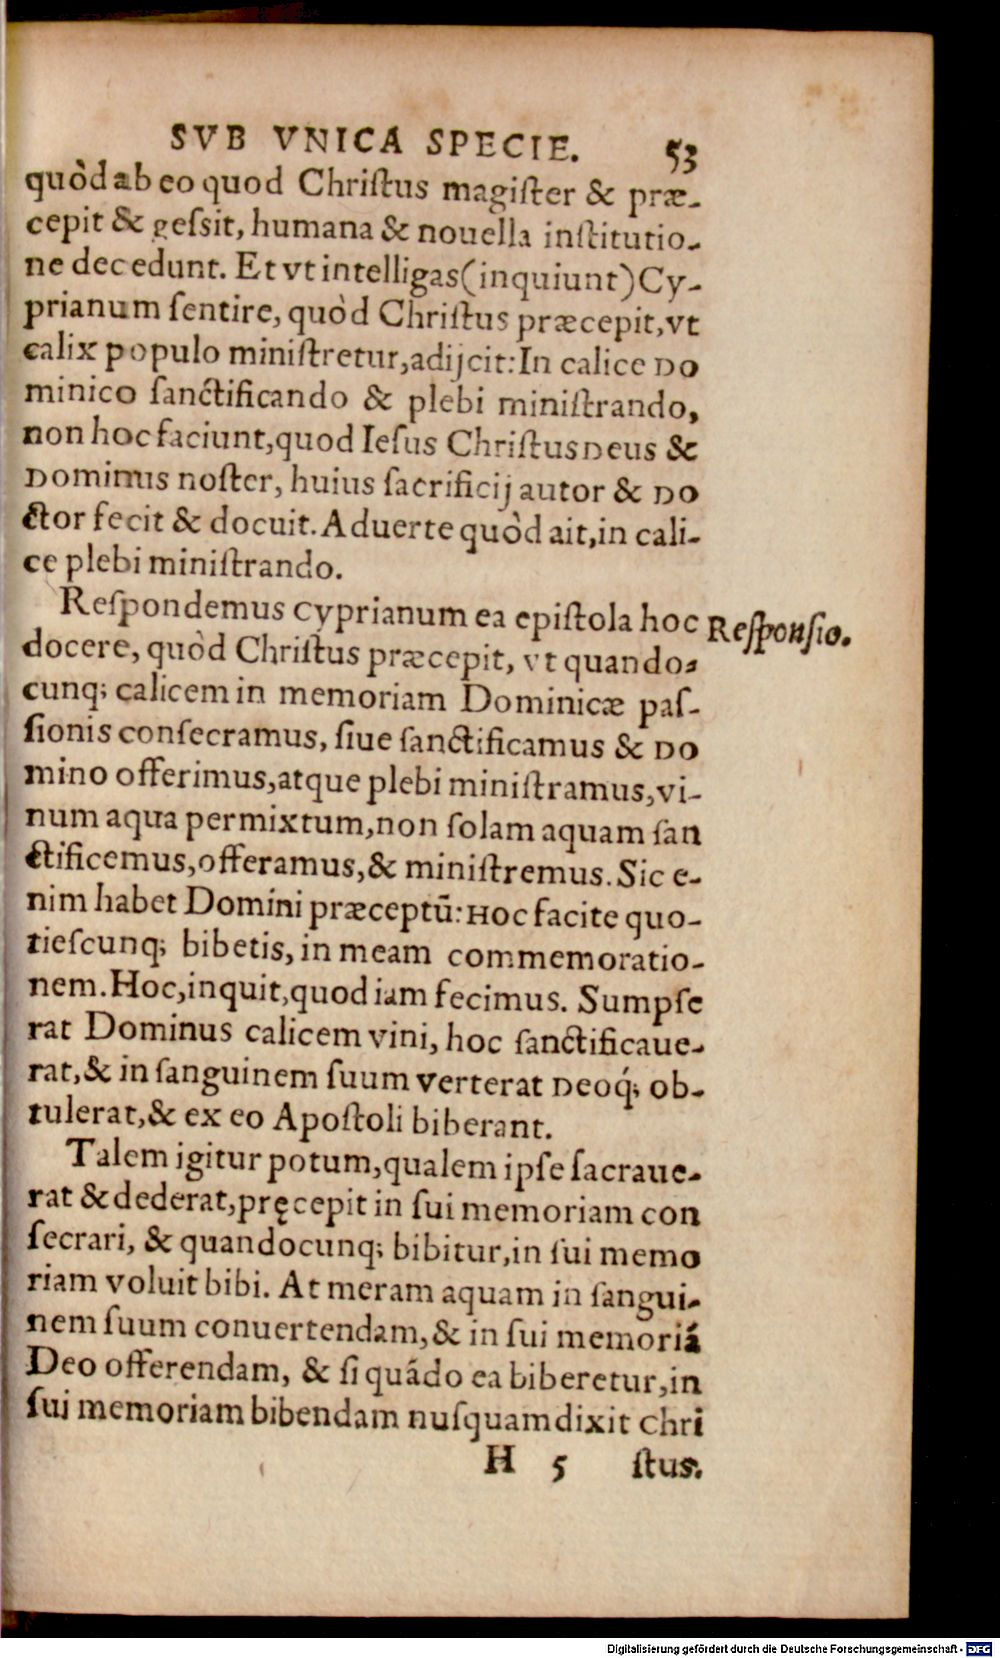 SVB VNICA SPECIE. 53
quòd ab eo quod Chriſtus magiſter & præ-
cepit & geſsit, humana & nouella inſtitutio-
ne decedunt. Et vt intelligas (inquiunt) Cy-
prianum ſentire, quòd Chriſtus præcepit, vt
calix populo miniſtretur, adijcit: In calice DO
minico ſanctificando & plebi miniſtrando,
non hoc faciunt, quod Ieſus Chriſtus Deus &
Dominus noſter, huius ſacrificij autor & DO
ctor fecit & docuit. Aduerte quòd ait, in cali-
ce plebi miniſtrando.
Reſpondemus Cyprianum ea epiſtola hoc
Reſponſio.
docere, quòd Chriſtus præcepit, vt quando-
cunq; calicem in memoriam Dominicæ paſ-
ſionis conſecramus, ſiue ſanctificamus & DO
mino offerimus, atque plebi miniſtramus, vi-
num aqua permixtum, non ſolam aquam ſan
ctificemus, offeramus, & miniſtremus. Sic e-
nim habet Domini præceptū: Hoc facite quo-
tieſcunq; bibetis, in meam commemoratio-
nem. Hoc, inquit, quod iam fecimus. Sumpſe
rat Dominus calicem vini, hoc ſanctificaue-
rat, & in ſanguinem ſuum verterat Deoq́; ob-
tulerat, & ex eo Apoſtoli biberant.
Talem igitur potum, qualem ipſe ſacraue-
rat & dederat, pręcepit in ſui memoriam con
ſecrari, & quandocunq; bibitur, in ſui memo
riam voluit bibi. At meram aquam in ſangui-
nem ſuum conuertendam, & in ſui memoriá
Deo offerendam, & ſi quádo ea biberetur, in
ſui memoriam bibendam nuſquam dixit Chri
H 5 ſtus.
Digitalisierung gefördert durch die Deutsche Forschungsgemeinschaft - DFG